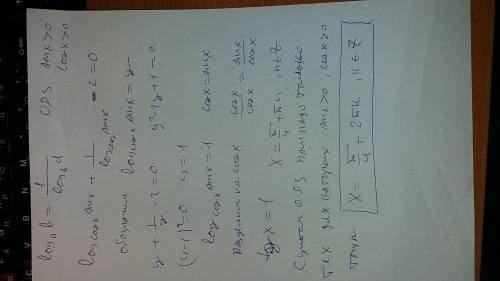 log_a b = 1/log_b a   ODЗ sin x>0
cos x>0
log_cos x sin x + 1/log_cos x sin x - 2 = 0
обозначим log_cos x sin x = y
y + 1/y - 2 = 0   y² - 2y + 1 = 0
(y-1)² = 0   y = 1
log_cos x sin x = 1   cos x = sin x
разделим на cos x   cos x/cos x = sin x/cos x
tg x = 1   x = π/4 + πn, n∈Z
С учетом ODЗ надо только
те x для которых sin x>0, cos x>0
тогда
x = π/4 + 2πn, n∈Z